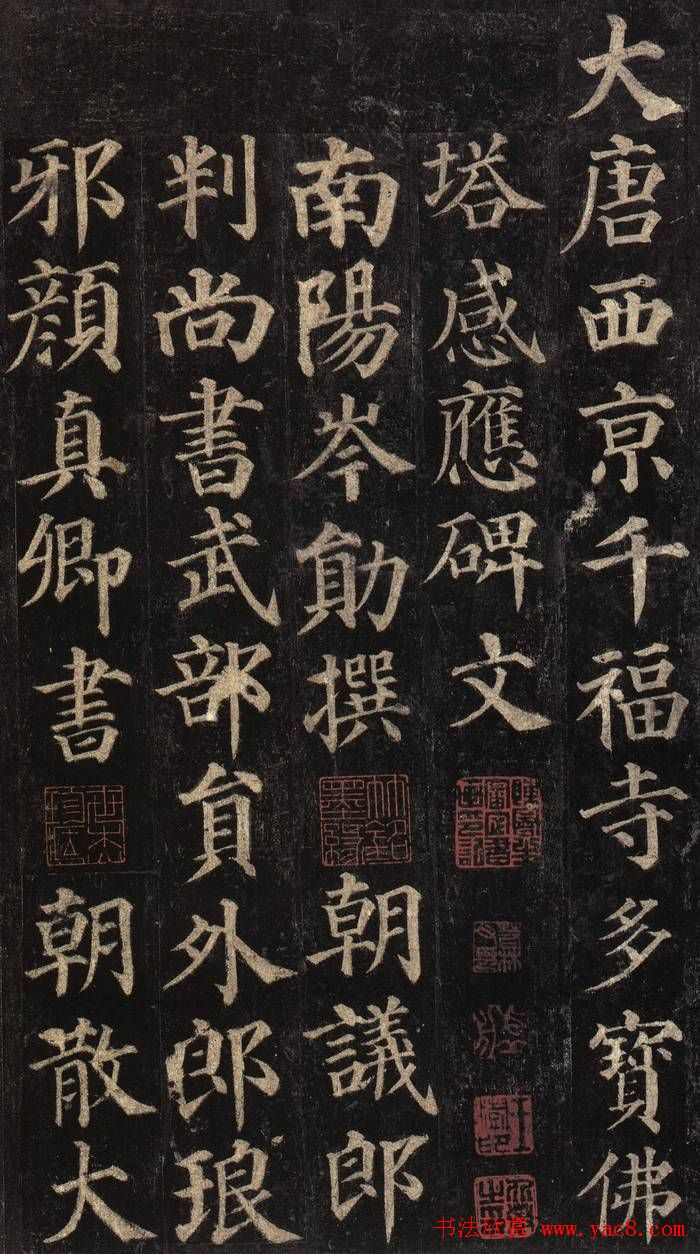 大唐西亰千福寺多寶佛
塔感應碑文
南陽岑勛撰 朝議郎
判尚書武部貟外郎琅
邪顔真卿書 朝散大
书法欣赏 www.yac8.com